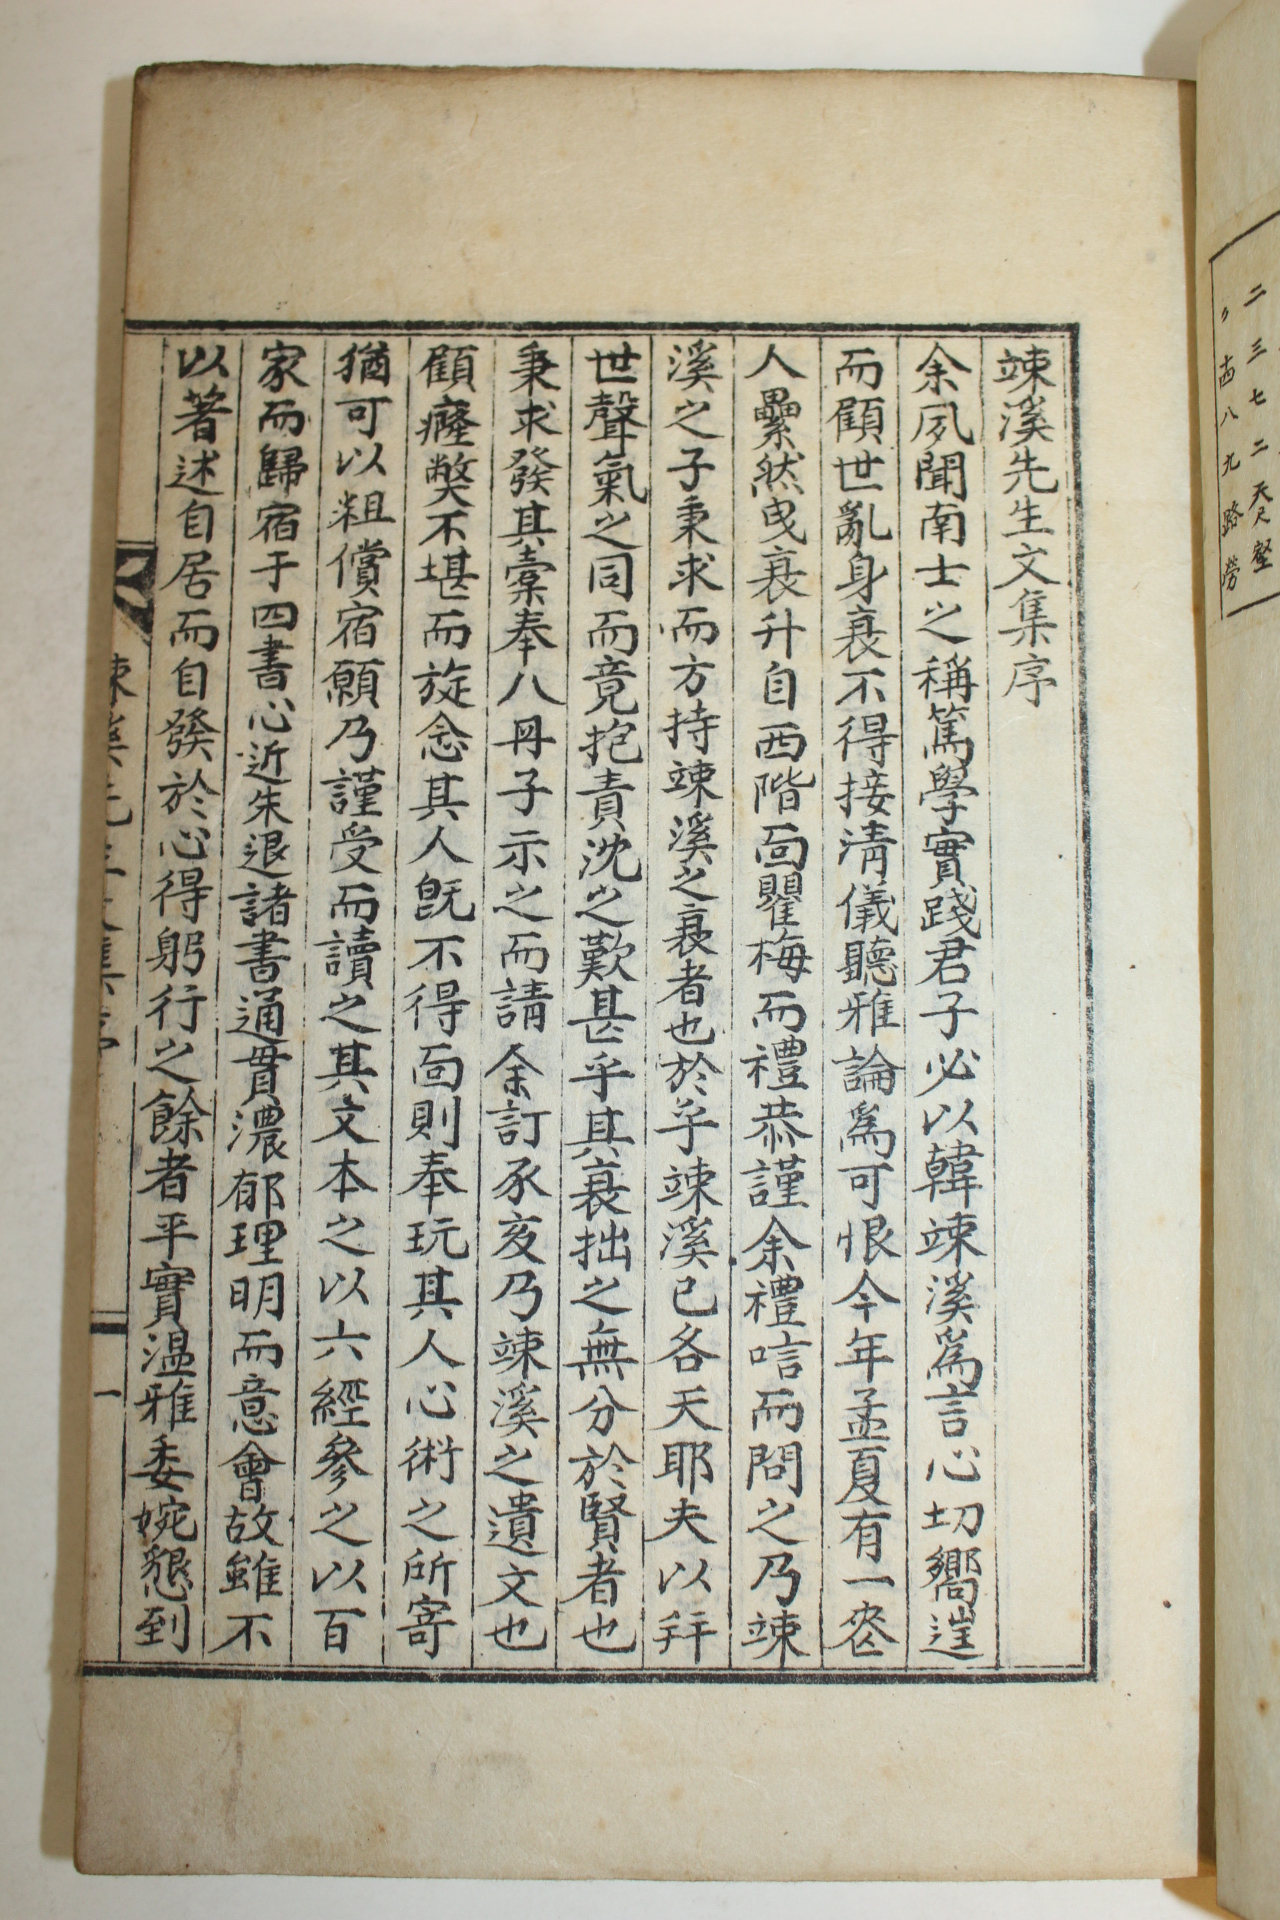 竦溪先生文集序
余夙聞南士之稱篤學實踐君子必以韓竦溪爲言心切嚮逬
而顧世亂身衰不得接淸儀聽雅論爲可恨今年孟夏有一
人纍然曳衰升自西階面瞿梅而禮恭謹余禮唁而問之乃竦
溪之子秉求而方持竦溪之衰者也於乎竦溪已各天耶夫以拜
世聲氣之同而竟抱責沈之歎甚乎其衰拙之無分於賢者也
秉求發其槖奉八冊子示之而請余訂豕亥乃竦溪之遺文也
顧癃獘不堪而旋念其人旣不得面則奉玩其人心術之所寄
猶可以粗償宿願乃謹受而讀之其文本之以六經參之以百
家而歸宿于四書心近朱退諸書通貫濃郁理明而意會故雖不
以著述自居而自發於心得躬行之餘者平實温雅委婉懇到
竦溪先生文集序
一
二三七二
八九路勞